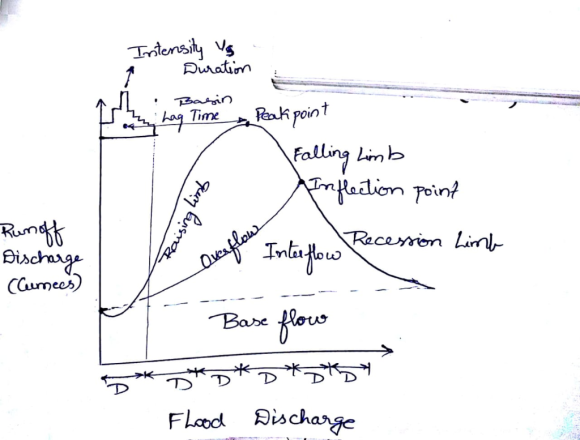 Intensity Vs
Duration
Basin
Lag Time
Peak point
Falling Limb
Inflection point
Raising limb
Overflow
Interflow
Recession Limb
Runoff
Discharge
(Cumecs)
Base flow
D D D D D D
Flood Discharge